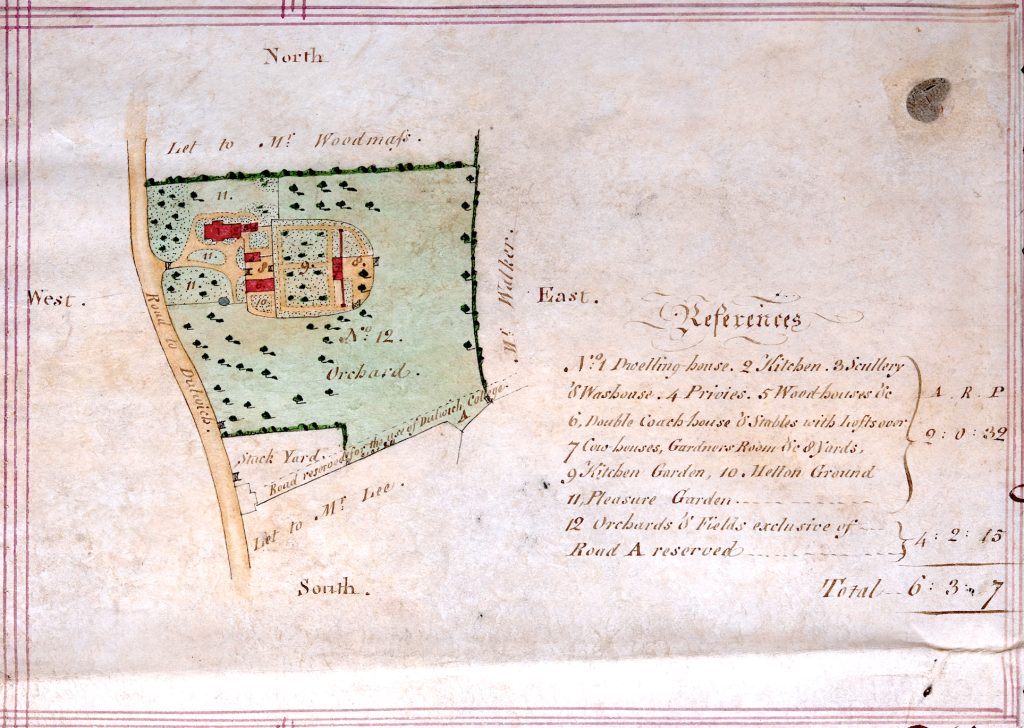 North
Let to Mr Woodmaſs.
11.
11
11
8
9.
8.
10.
West.
East.
Mr Walker.
Road to Dulwich.
No. 12.
Orchard.
Stack Yard.
Road reserved for the use of Dulwich College.
A
Let to Mr Lee.
South.
References
No. 1 Dwelling house. 2 Kitchen. 3 Scullery
& Washouse. 4 Privies. 5 Wood houses &c
6, Double Coach house & Stables with Lofts over
7 Cow houses, Gardners Room &c 8, Yards,
9 Kitchen Garden, 10. Mellon Ground
11, Pleasure Garden
A. R. P
2: 0: 32
12 Orchards & Fields exclusive of
Road A reserved
4: 2: 15
Total 6: 3: 7